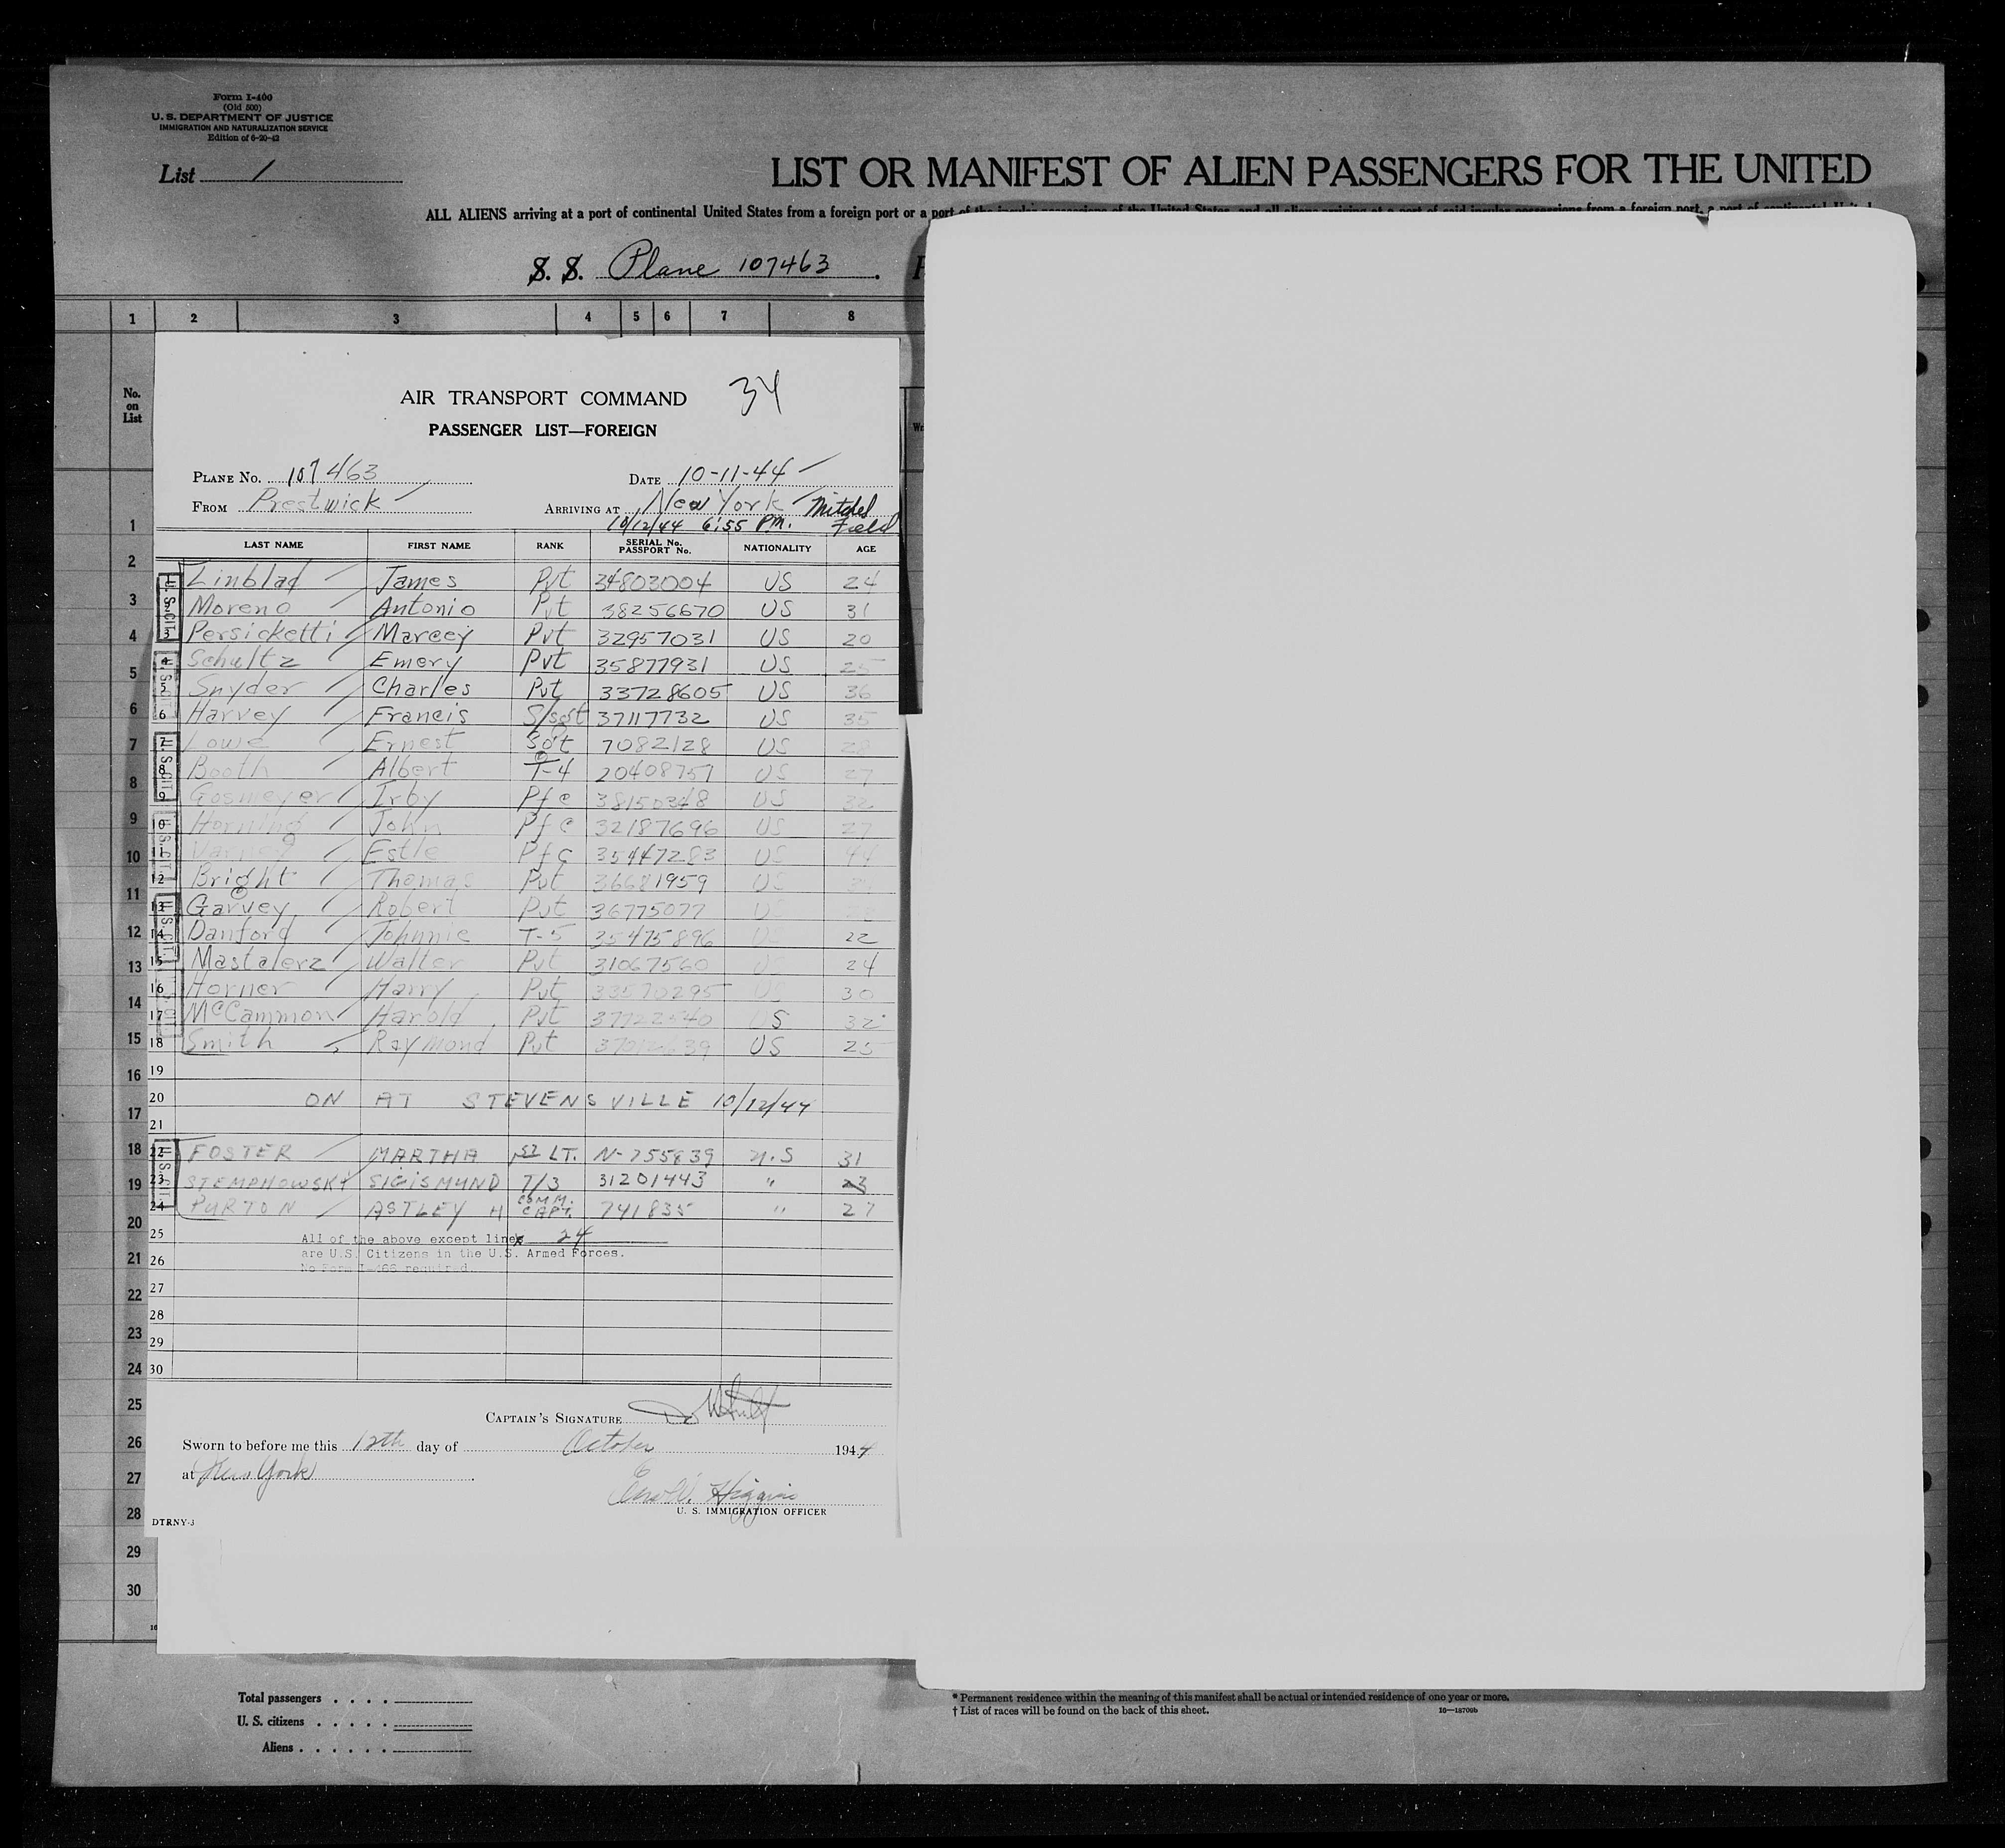 Form I-400
(Old 500)
U. S. DEPARTMENT OF JUSTICE
IMMIGRATION AND NATURALIZATION SERVICE
Edition of 6-20-42
List 1
LIST OR MANIFEST OF ALIEN PASSENGERS FOR THE UNITED
ALL ALIENS arriving at a port of continental United States from a foreign port or a port of the insular possessions of the United States, and all aliens arriving at a port of said insular possessions from a foreign port, a port of continental
S. S. Plane 107463
1 2 3 4 5 6 7 8
No. on List
AIR TRANSPORT COMMAND 34
PASSENGER LIST—FOREIGN
PLANE NO. 107463 DATE 10-11-44
FROM Prestwick ARRIVING AT New York Mitchel Field
10/12/44 6:55 PM.
LAST NAME FIRST NAME RANK SERIAL NO. PASSPORT NO. NATIONALITY AGE
Linblad James Pvt 34803004 US 24
Moreno Antonio Pvt 38256670 US 31
3 Persicketti Marcey Pvt 32957031 US 20
4 Schultz Emery Pvt 35877931 US 25
5 Snyder Charles Pvt 33728605 US 36
6 Harvey Francis S/sgt 37117732 US 35
7 Lowe Ernest Sgt 7082128 US 28
8 Booth Albert T-4 20408757 US 27
9 Gosmeyer Irby Pfc 38150348 US 32
10 Horning John Pfc 32187696 US 27
11 Estle Pfc 35447283 US 44
12 Bright Thomas Pvt 36681959 US
13 Garvey Robert Pvt 36775077 US
14 Danford Johnnie T-5 35475896 US 22
15 Mastalerz Walter Pvt 31067560 US 24
16 Horner Harry Pvt 33570295 US 30
17 McCammon Harold Pvt 37722540 US 32
18 Smith Raymond Pvt US 25
19
20 ON AT STEVENSVILLE 10/12/44
21
22 FOSTER MARTHA 1st LT. N-755839 U.S 31
23 STEMPHOWSKI SIGISMUND T/3 31201443 " 23
24 PURTON ASTLEY H COMM. CAPT. 741835 " 27
25 All of the above except line 24
are U.S. Citizens in the U.S. Armed Forces.
26 No Form I-466 required.
27
28
29
30
CAPTAIN'S SIGNATURE
Sworn to before me this 12th day of October 1944
at New York
Higgins
U. S. IMMIGRATION OFFICER
DTRNY-3
1
2
3
4
5
6
7
8
9
10
11
12
13
14
15
16
17
18
19
20
21
22
23
24
25
26
27
28
29
30
Total passengers
U. S. citizens
Aliens
* Permanent residence within the meaning of this manifest shall be actual or intended residence of one year or more.
† List of races will be found on the back of this sheet.
16—18706b